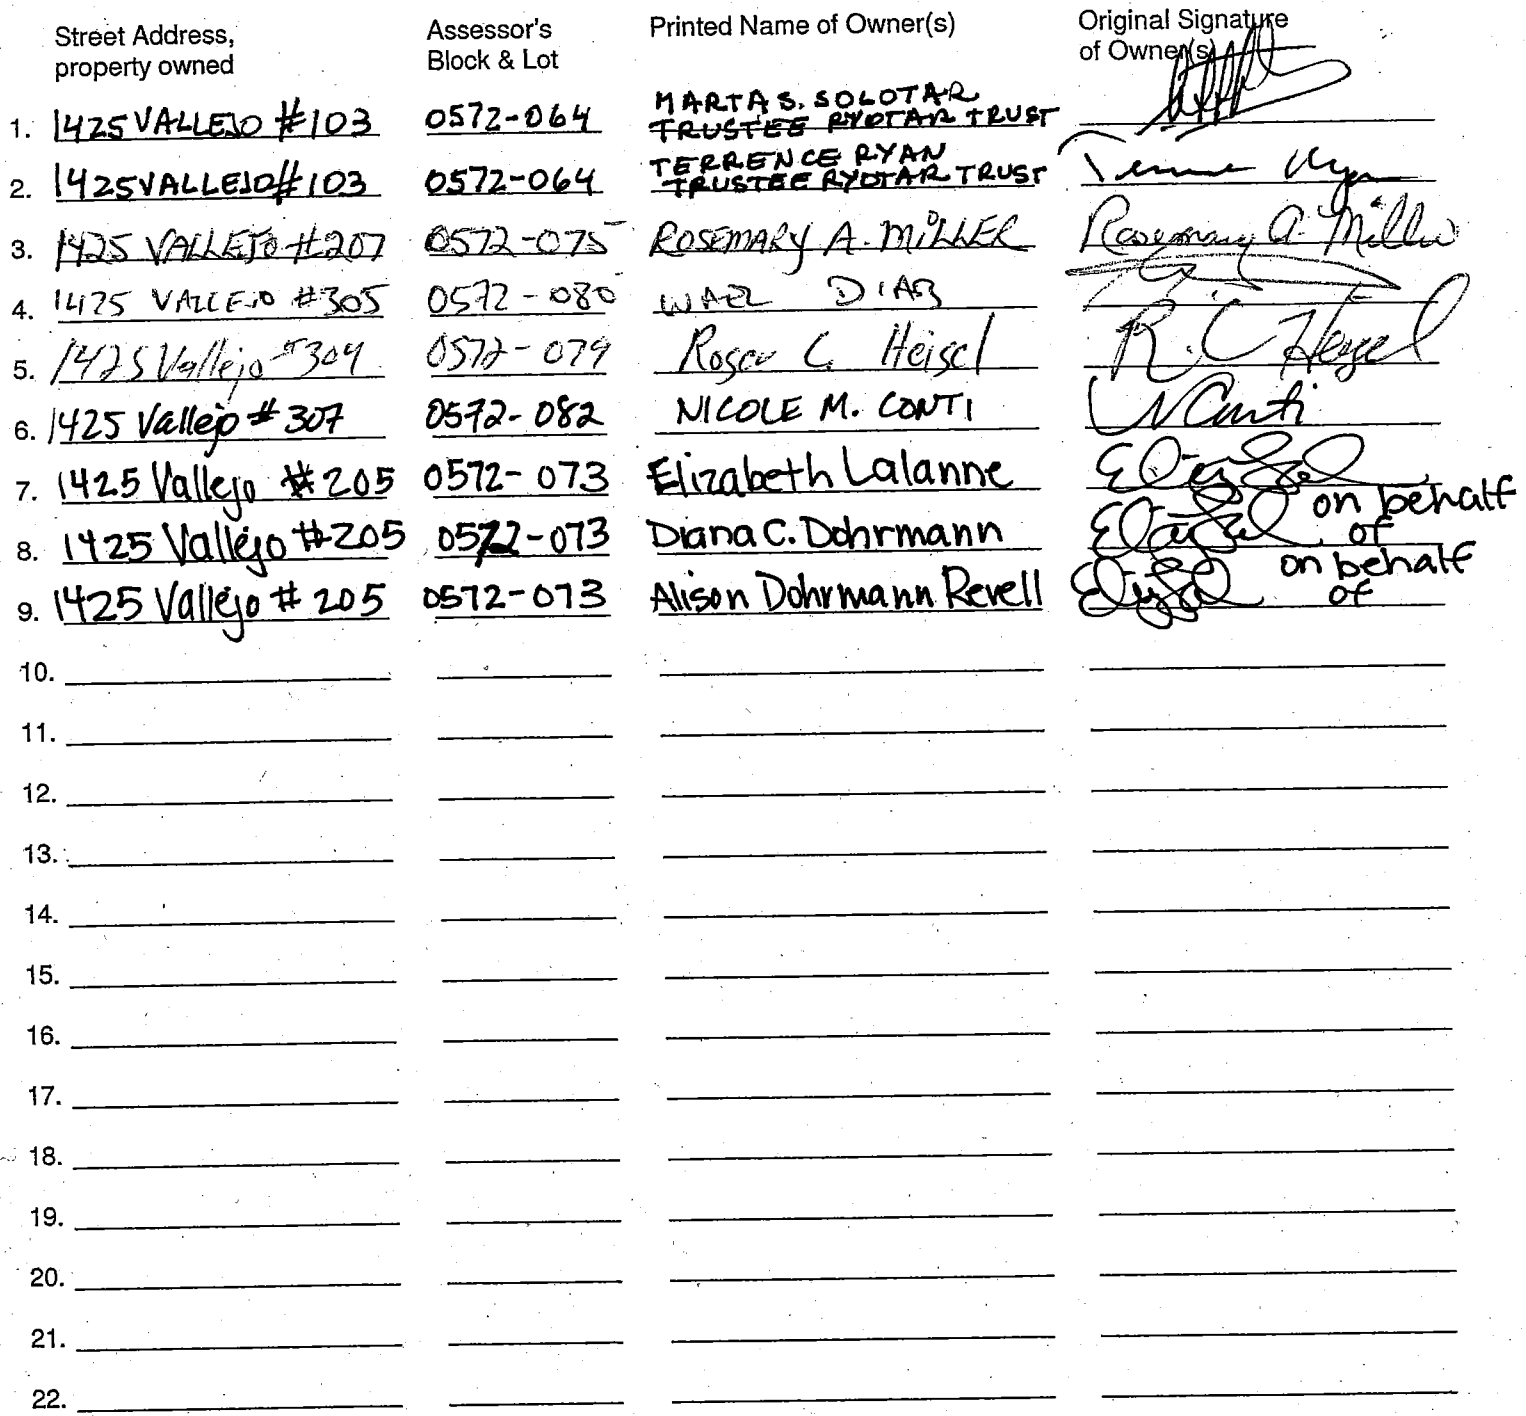 Street Address, property owned Assessor's Block & Lot Printed Name of Owner(s) Original Signature of Owner(s)
1. 1425 VALLEJO #103 0572-064 MARTA S. SOLOTAR TRUSTEE RYOTAR TRUST
2. 1425 VALLEJO #103 0572-064 TERRENCE RYAN TRUSTEE RYOTAR TRUST
3. 1425 VALLEJO #207 0572-075 ROSEMARY A. MILLER Rosemary A. Miller
4. 1425 VALLEJO #305 0572-080 WAEL DIAB
5. 1425 Vallejo #304 0572-079 Roger C. Heisel R. C. Heisel
6. 1425 Vallejo # 307 0572-082 NICOLE M. CONTI N Conti
7. 1425 Vallejo #205 0572-073 Elizabeth Lalanne
8. 1425 Vallejo #205 0572-073 Diana C. Dohrmann on behalf of
9. 1425 Vallejo # 205 0572-073 Alison Dohrmann Revell on behalf of
10.
11.
12.
13.
14.
15.
16.
17.
18.
19.
20.
21.
22.